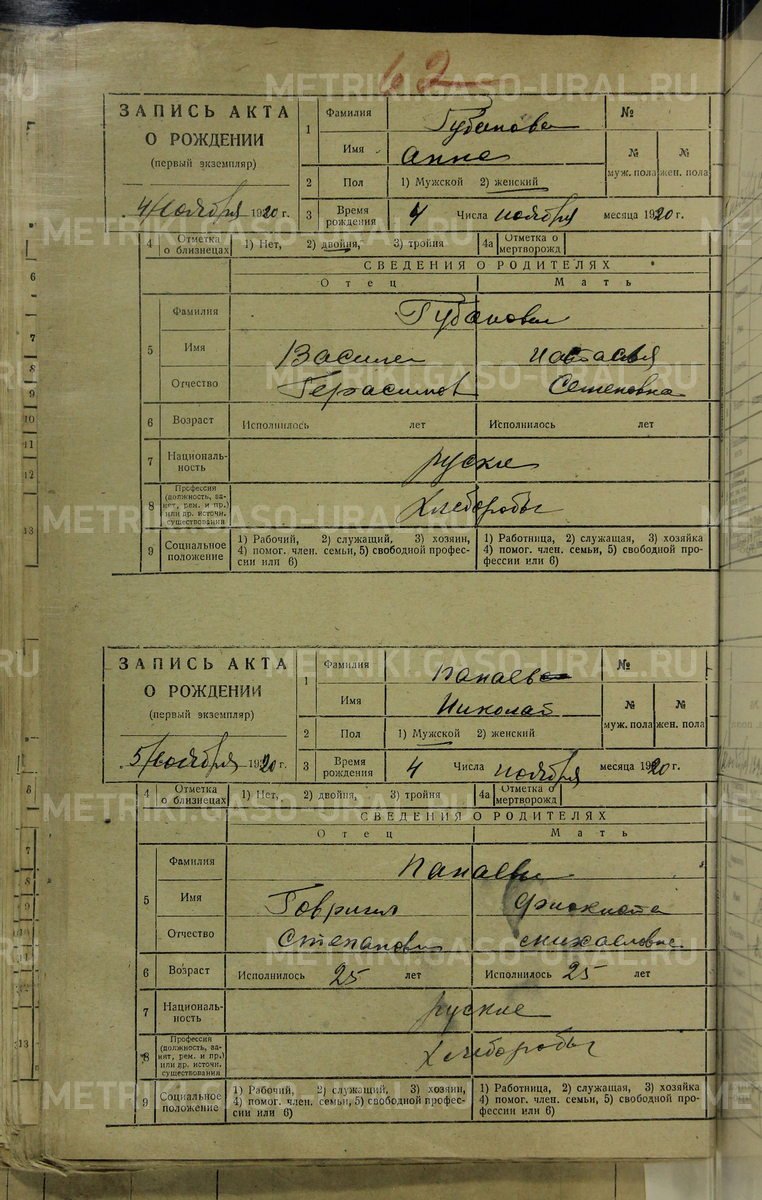 62
ЗАПИСЬ АКТА
О РОЖДЕНИИ
(первый экземпляр)
4 Ноября 1920 г.
1 Фамилия Губанова №
Имя Анна № муж. пола № жен. пола
2 Пол 1) Мужской 2) женский
3 Время рождения 4 Числа ноября месяца 1920 г.
4 Отметка о близнецах 1) Нет, 2) двойня, 3) тройня 4а Отметка о мертворожд
СВЕДЕНИЯ О РОДИТЕЛЯХ
Отец Мать
5 Фамилия Губановы
Имя Василей Настасья
Отчество Герасимов Семеновна
6 Возраст Исполнилось лет Исполнилось лет
7 Националь-
ность руские
8 Профессия
(должность, за-
нят, рем. и пр.)
или др. источн.
существования Хлеборобы
9 Социальное положение 1) Рабочий, 2) служащий, 3) хозяин, 1) Работница, 2) служащая, 3) хозяйка
4) помог. член. семьи, 5) свободной профес- 4) помог. член. семьи, 5) свободной про-
сии или 6) фессии или 6)
ЗАПИСЬ АКТА
О РОЖДЕНИИ
(первый экземпляр)
5 Ноября 1920 г.
1 Фамилия Панаев №
Имя Николай № муж. пола № жен. пола
2 Пол 1) Мужской 2) женский
3 Время рождения 4 Числа ноября месяца 1920 г.
4 Отметка о близнецах 1) Нет, 2) двойня, 3) тройня 4а Отметка о мертворожд
СВЕДЕНИЯ О РОДИТЕЛЯХ
Отец Мать
5 Фамилия Панаевы
Имя Говрил
Отчество Степанович
6 Возраст Исполнилось 25 лет Исполнилось 25 лет
7 Националь-
ность руские
8 Профессия
(должность, за-
нят, рем. и пр.)
или др. источн.
существования Хлеборобы
9 Социальное положение 1) Рабочий, 2) служащий, 3) хозяин, 1) Работница, 2) служащая, 3) хозяйка
4) помог. член. семьи, 5) свободной профес- 4) помог. член. семьи, 5) свободной про-
сии или 6) фессии или 6)
METRIKI.GASO-URAL.RU